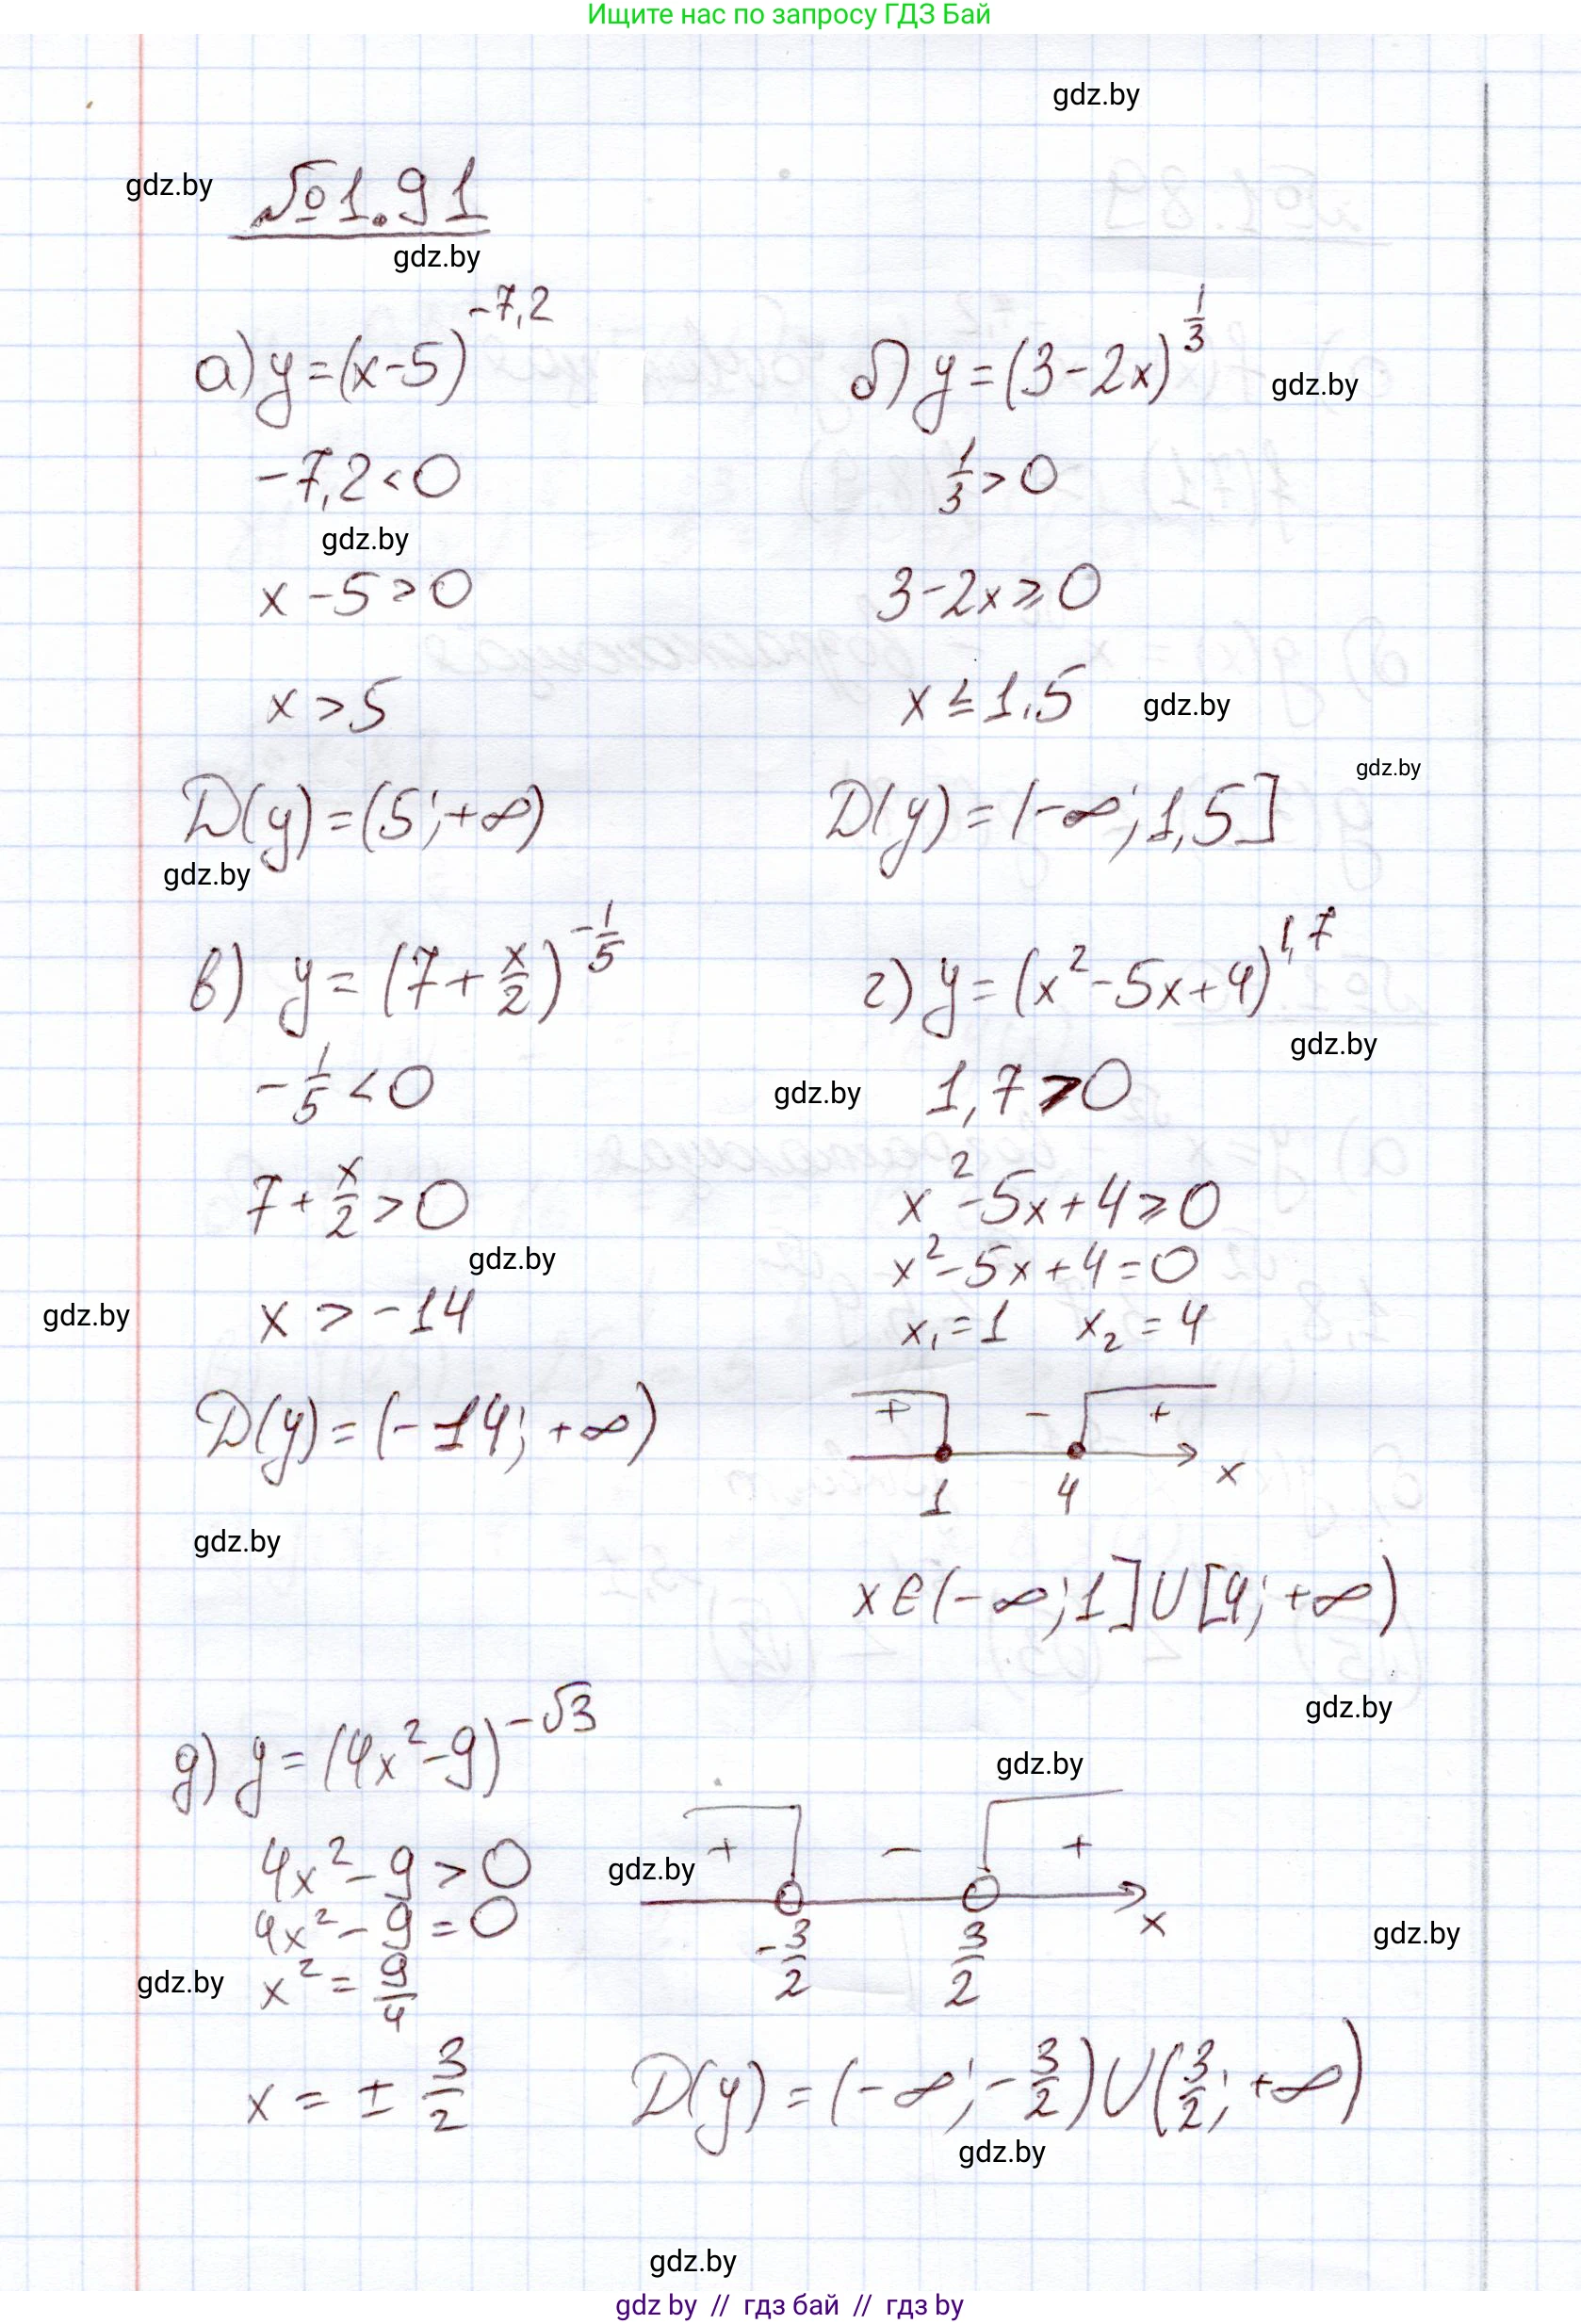 Ищите нас по запросу ГДЗ Бай
gdz.by
gdz.by
№1.91
gdz.by
а) y=(x-5)^{-7,2}
-7,2<0
gdz.by
x-5>0
x>5
D(y)=(5;+∞)
gdz.by
б) y=(3-2x)^{1/3}
gdz.by
1/3>0
3-2x≥0
x≤1,5
gdz.by
gdz.by
D(y)=(-∞;1,5]
в) y=(7+x/2)^{-1/5}
-1/5<0
gdz.by
7+x/2>0
gdz.by
gdz.by
x>-14
D(y)=(-14;+∞)
gdz.by
г) y=(x²-5x+4)^{1,7}
gdz.by
1,7>0
x²-5x+4≥0
x²-5x+4=0
x₁=1 x₂=4
+ - +
1 4 x
x∈(-∞;1]∪[4;+∞)
gdz.by
д) y=(4x²-9)^{-√3}
gdz.by
4x²-9>0
4x²-9=0
gdz.by
x²=9/4
x=±3/2
gdz.by
+ - +
-3/2 3/2 x
gdz.by
D(y)=(-∞;-3/2)∪(3/2;+∞)
gdz.by
gdz.by
gdz by // гдз бай // гдз by